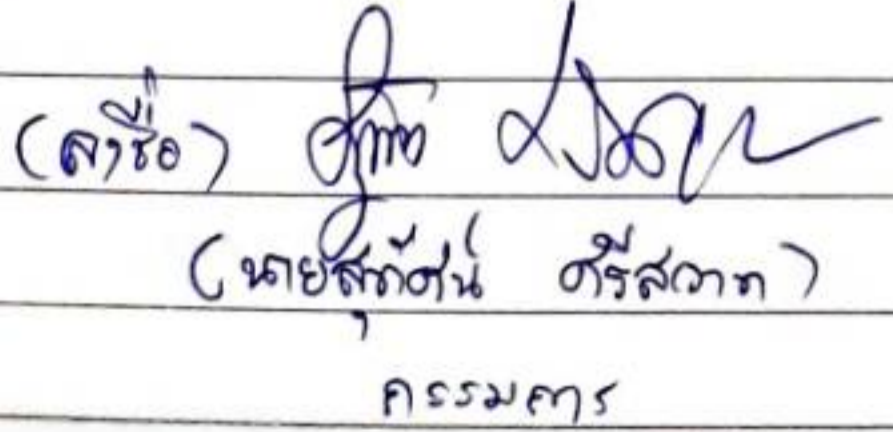 (ลงชื่อ)
(นายสุทัศน์ ศรีสวาท)
กรรมการ